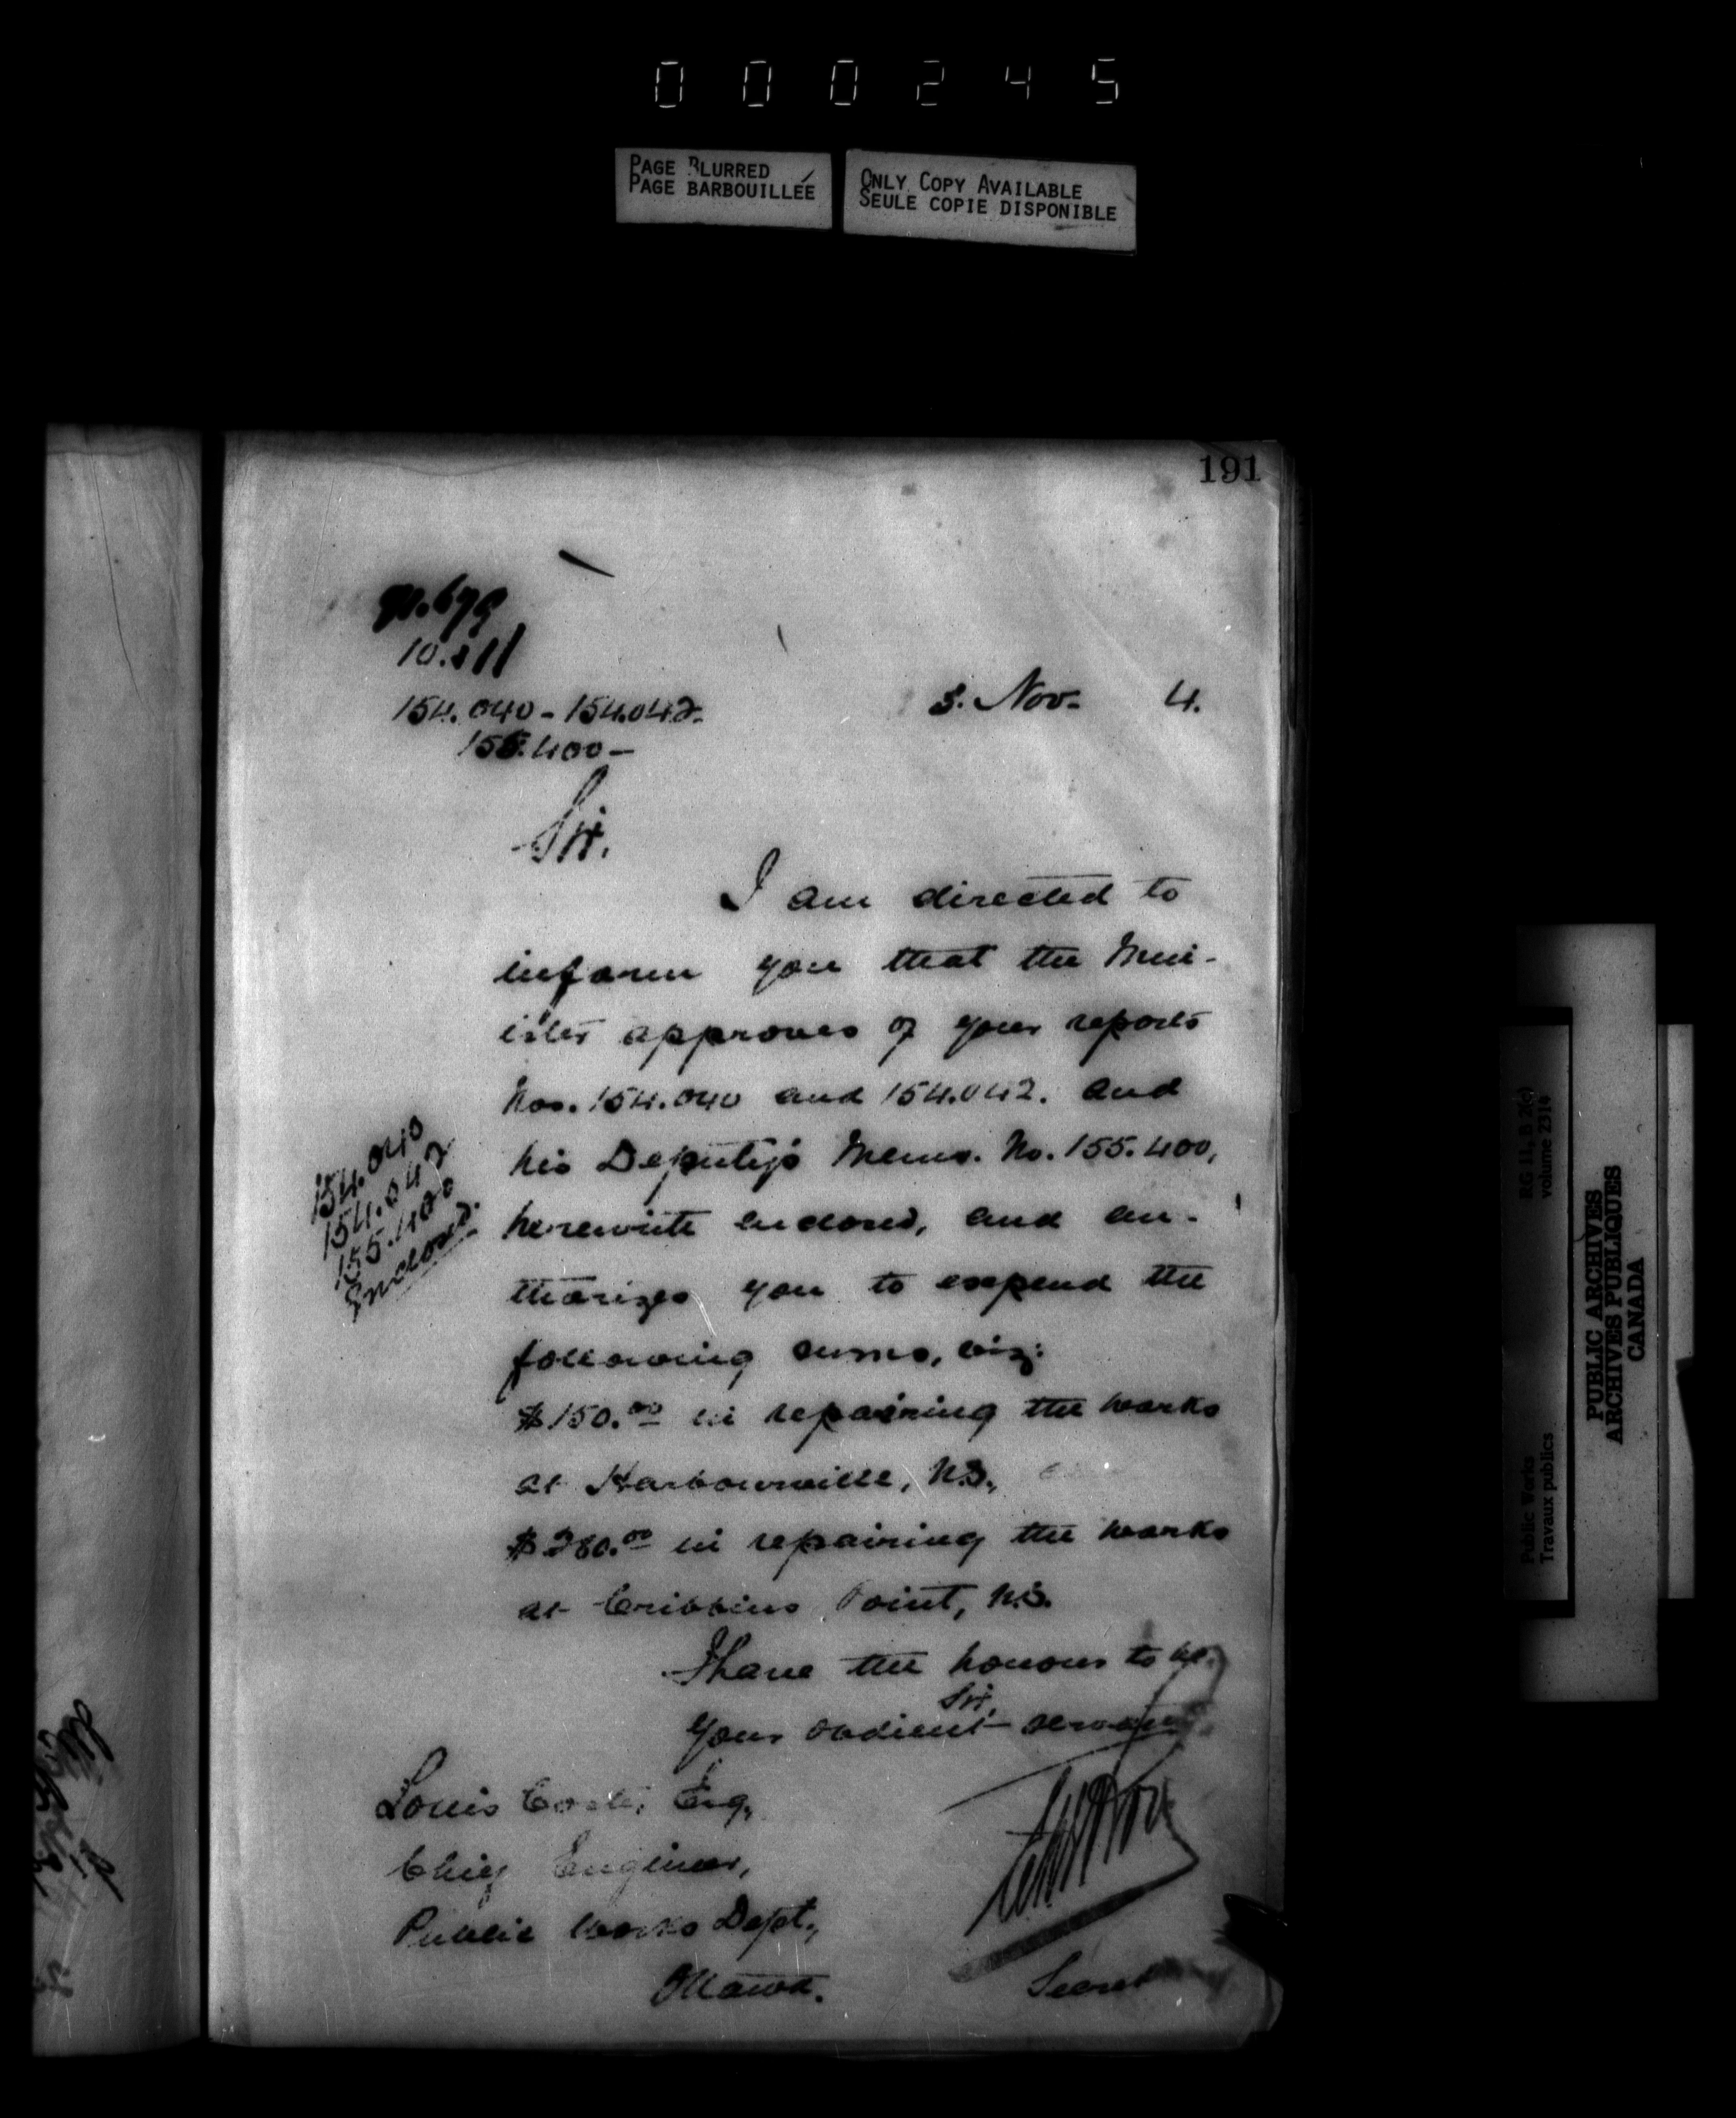 000245
PAGE BLURRED
PAGE BARBOUILLÉE
ONLY COPY AVAILABLE
SEULE COPIE DISPONIBLE
191
10.
154.040 - 154.042.
155.400 -
3. Nov. 4.
Sir.
I am directed to
inform you that the Min-
ister approves of your reports
Nos. 154.040 and 154.042. and
his Deputy's Memo. No. 155.400,
herewith enclosed, and au-
thorizes you to expend the
following sums, viz:
$150.00 in repairing the works
at Harbourville, N.S.,
$280.00 in repairing the works
at Cribbins Point, N.S.
154.040
154.042
155.400
Enclosed.
I have the honour to be.
Sir,
Your obedient servant
Louis Coste, Esq,
Chief Engineer,
Public Works Dept.,
Ottawa.
Secretary
RG 11, B 2(c)
volume 2314
Public Works
Travaux publics
PUBLIC ARCHIVES
ARCHIVES PUBLIQUES
CANADA